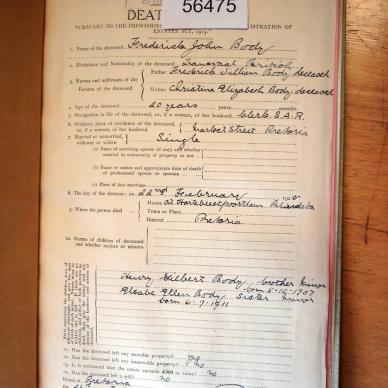 56475
DEAT
PURSUANT TO THE PROVISIONS ISTRATION OF
ESTATES ACT, 1913.
1. Name of the deceased Frederick John Body
2. Birthplace and Nationality of the deceased Transvaal British
3. Names and addresses of the Parents of the deceased
Father Frederick William Body, deceased
Mother Christina Elizabeth Body deceased
4. Age of the deceased 20 years months
5. Occupation in life of the deceased, or if a woman, of her husband Clerk S.A.R.
6. Ordinary place of residence of the deceased, or, if a woman, of her husband Market Street Pretoria
7. Married or unmarried, widower or widow Single
(a) Name of surviving spouse (if any) and whether married in community of property or not
(b) Name or names and approximate date of death of predeceased spouse or spouses
(c) Place of last marriage
8. The day of the decease: on 22nd February
9. Where the person died
House at Hartebeestpoortdam
Town or Place
District Pretoria
10. Names of children of deceased and whether majors or minors
Henry Gilbert Body, brother minor
born 5-12-1907
Ellen Body, Sister minor
born 6-7-1911
11. Has the deceased left any movable property? yes
12. Has the deceased left any immovable property? no
13. Is it estimated that the estate exceeds £300 in value? no
14. Has the deceased left a will? no
Dated at Pretoria